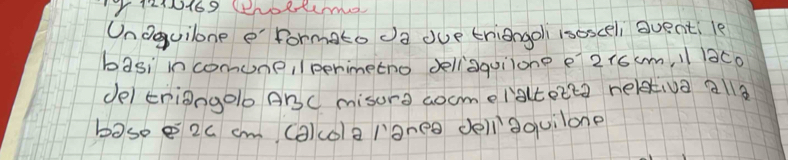 Problema
Un aquilone e' formato da due triangoli isosceli aventi le
basi in comune, il perimetro dell'aquilone e' 216 cm, il lato
del triangolo ABC misura 40cm e l'altezza relativa alla
base è 24 cm. Calcola l'area dell'aquilone